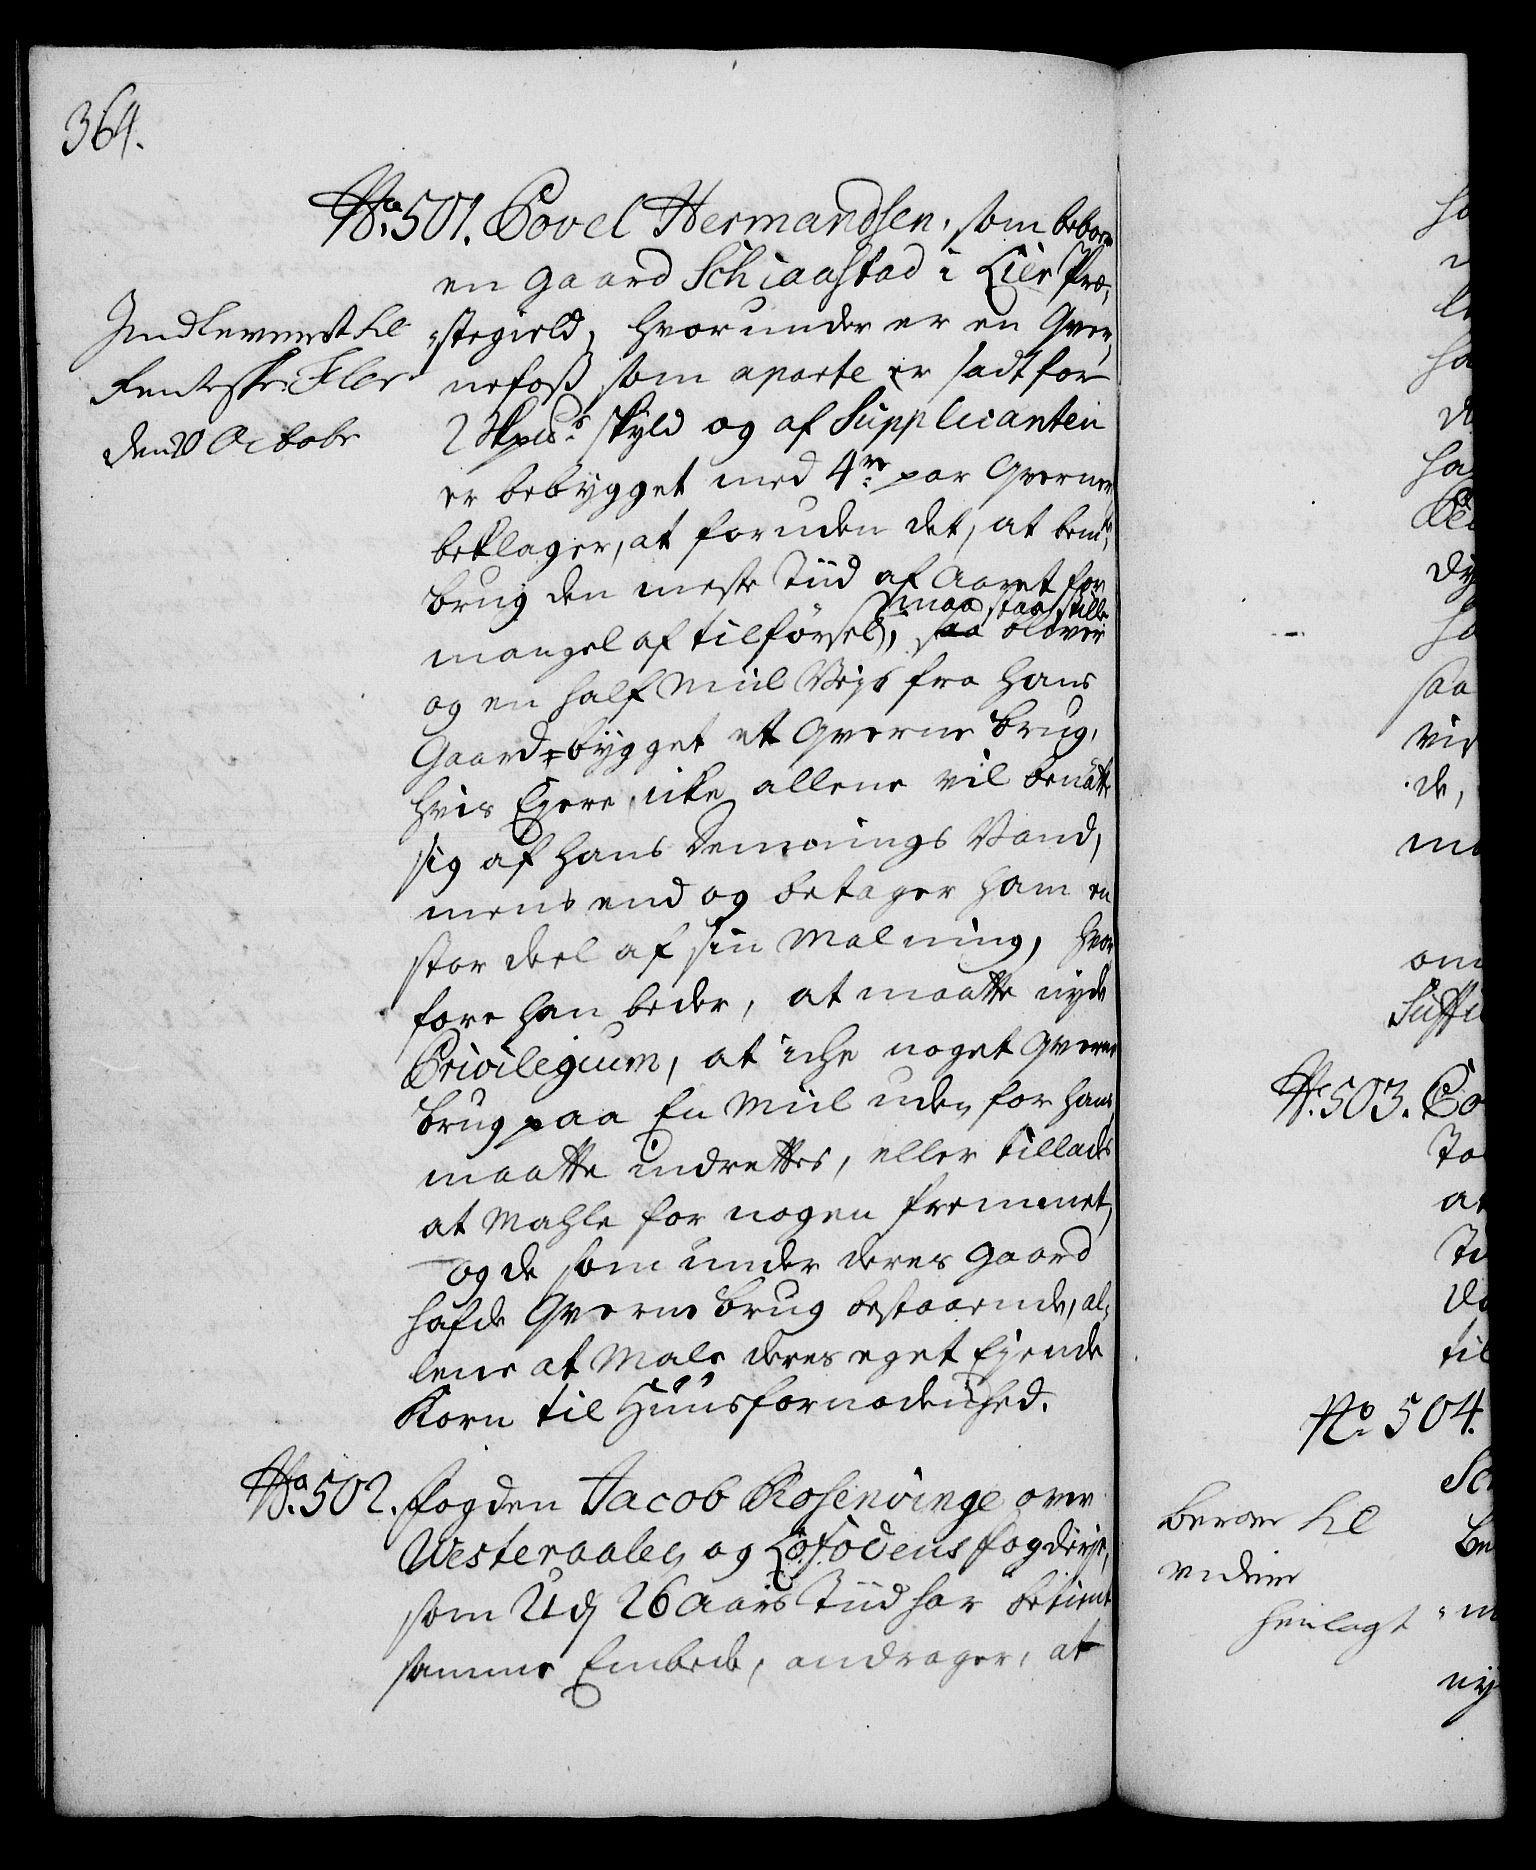 364.
No. 501. Povel Hermandsen, som beboer
en gaard Schiaastad i Lier Præ,
stegield, hvorunder er en Qver,
nefoss som aparte er sadt for
2 Skpd.s skyld og af Supplicanten
er bebygget med 4re par Qverner,
beklager, at foruden det, at bemte
brug den meste Tiid af Aaret for
mangel af tilførsel, maa staa stille
saa bliver
og en half Miil Veys fra hans
Gaard bygget ett Qverne brug,
hvis Eyere icke allene vil benøtte
sig af hans Demnings Vand,
mens end og betager ham en
stor deel af sin Malning, hvor
fore han beder, at maatte nyde
Privilegium, at iche noget Qverne
brug paa En Miil uden for hans
maatte indrettes, eller tillades
at Mahle for nogen fremmet,
og de som under deres gaard
hafde Qverne brug bestaaende, al,
lene at Male deres eget Eyende
Korn til Huusfornødenhed.
Indleveret til
den 20 Octobr
No. 502. Fogden Jacob Rosenvinge over
Westeraalen og Lofodens fogderje,
som Udj 26 Aars Tiid har betient
samme Embede, andrager, at
No. 503. Co
No. 504.
beroer til
videre
henlagt